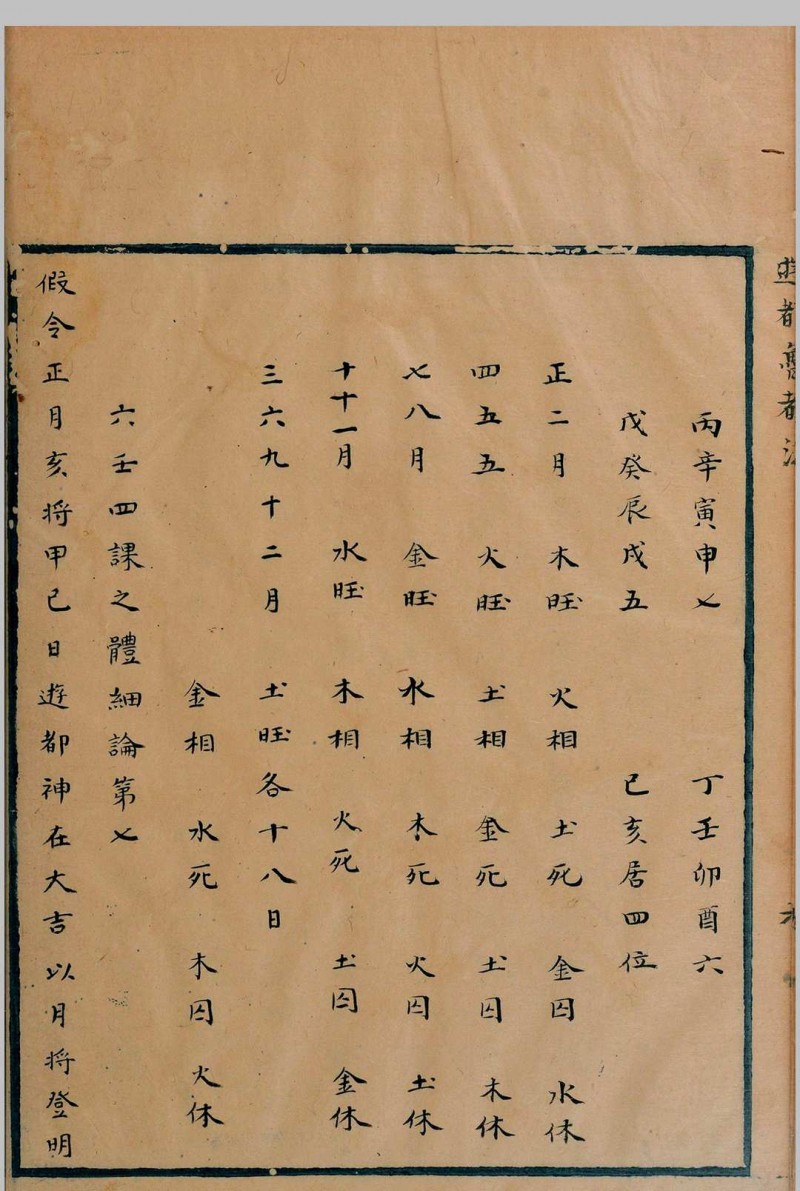 遊都魯都法
丙辛寅申七 丁壬卯酉六
戊癸辰戌五 巳亥居四位
正二月 木旺 火相 土死 金囚 水休
四五五 火旺 土相 金死 土囚 木休
七八月 金旺 水相 木死 火囚 土休
十十一月 水旺 木相 火死 土囚 金休
三六九十二月 土旺各十八日
金相 水死 木囚 火休
六壬四課之體細論第七
假令正月亥将甲己日遊都神在大吉以月将登明